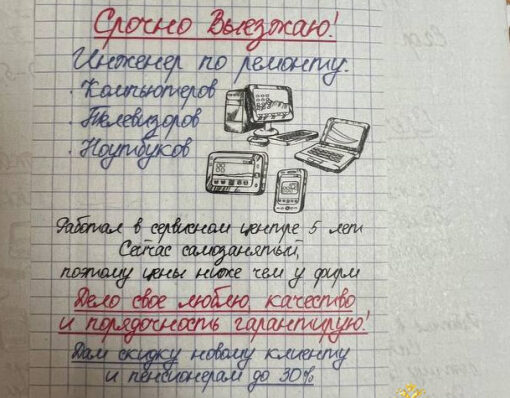 Срочно Выезжаю!
Инженер по ремонту:
· Компьютеров
· Телевизоров
· Ноутбуков
Работал в сервисном центре 5 лет
Сейчас самозанятый,
поэтому цены ниже чем у фирм
Дело свое люблю, качество
и порядочность гарантирую!
Дам скидку новому клиенту
и пенсионерам до 30%